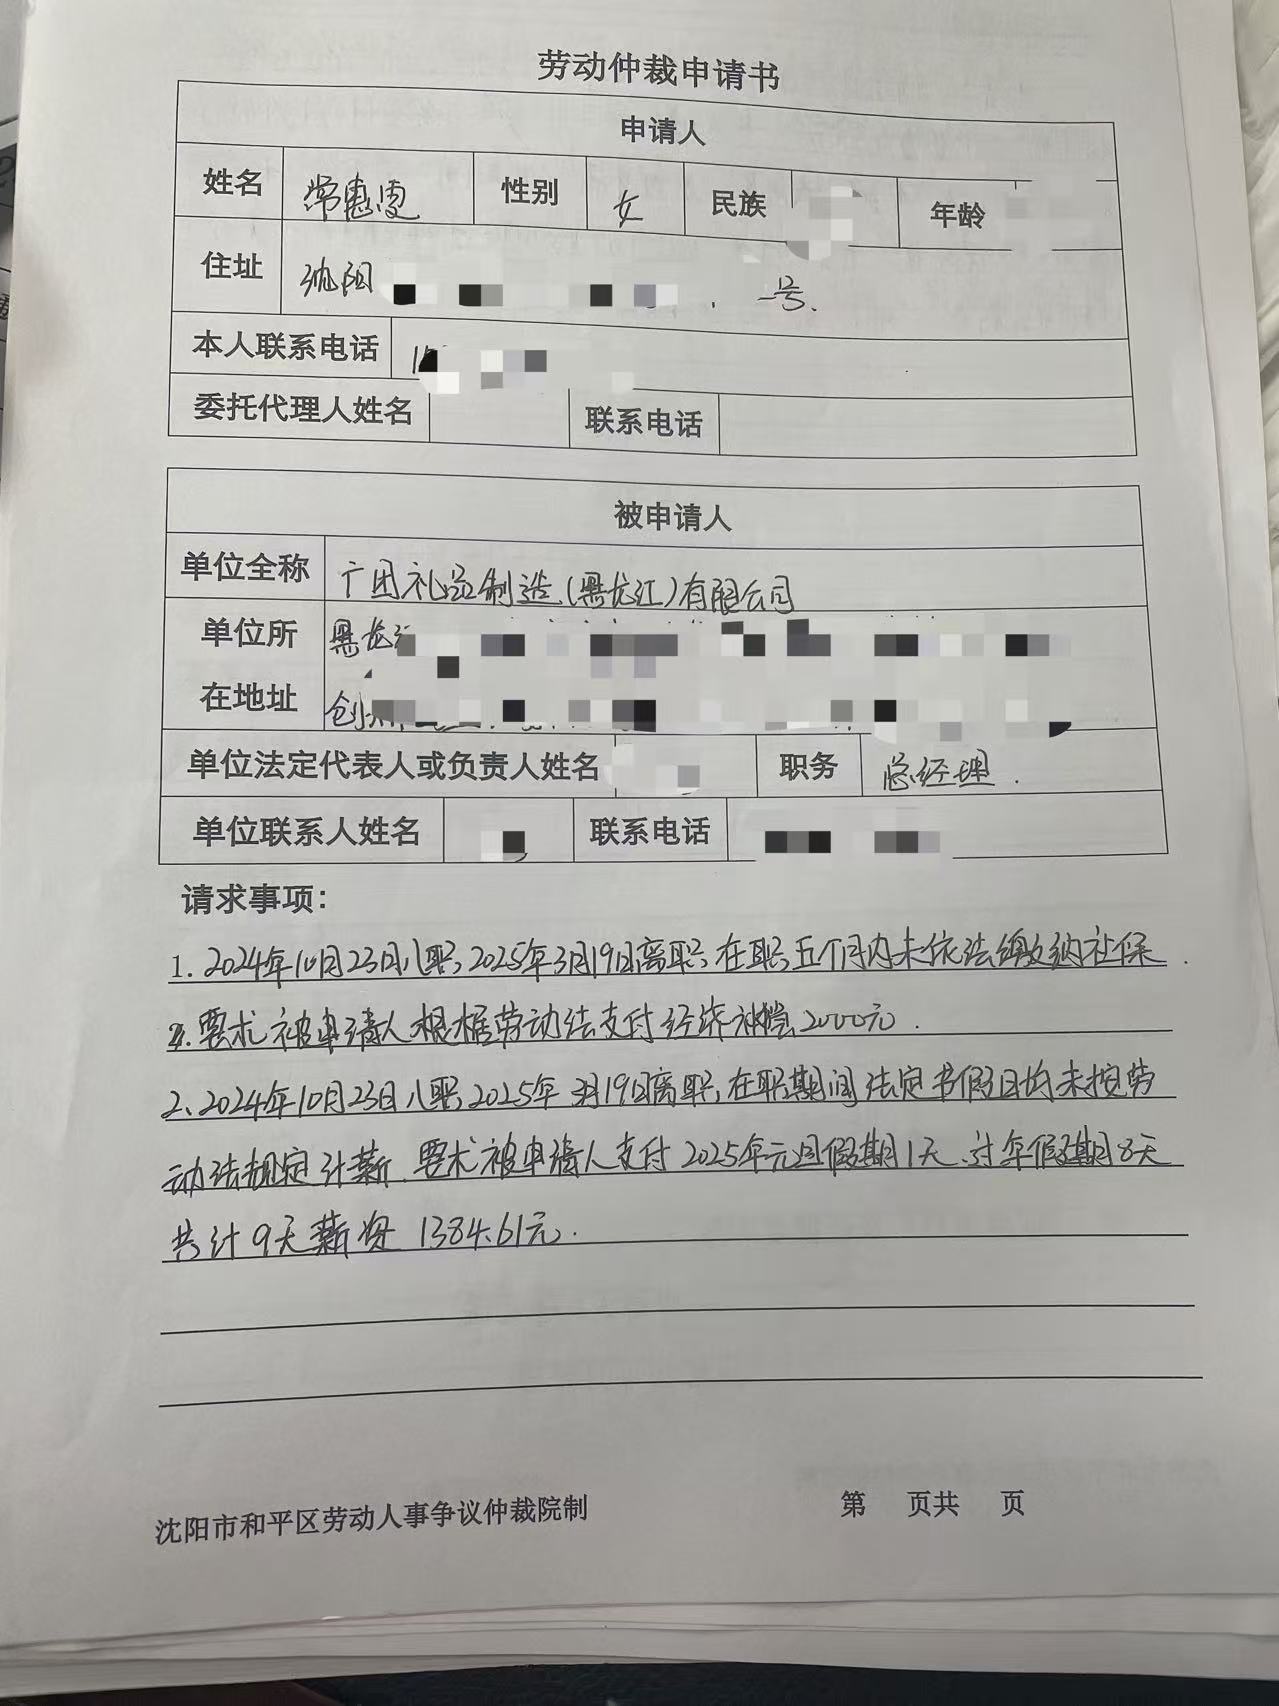 劳动仲裁申请书
申请人
姓名 常惠雯 性别 女 民族 年龄
住址 沈阳 号.
本人联系电话
委托代理人姓名 联系电话
被申请人
单位全称 广团礼品制造(黑龙江)有限公司
单位所 黑龙江
在地址 创
单位法定代表人或负责人姓名 职务 总经理.
单位联系人姓名 联系电话
请求事项:
1.2024年10月23日入职,2025年3月19日离职,在职五个月内未依法缴纳社保.
要求被申请人根据劳动法支付经济补偿2000元.
2、2024年10月23日入职,2025年3月19日离职,在职期间法定节假日均未按劳
动法规定计薪.要求被申请人支付2025年元旦假期1天、过年假期8天
共计9天薪资 1384.61元.
沈阳市和平区劳动人事争议仲裁院制 第 页共 页